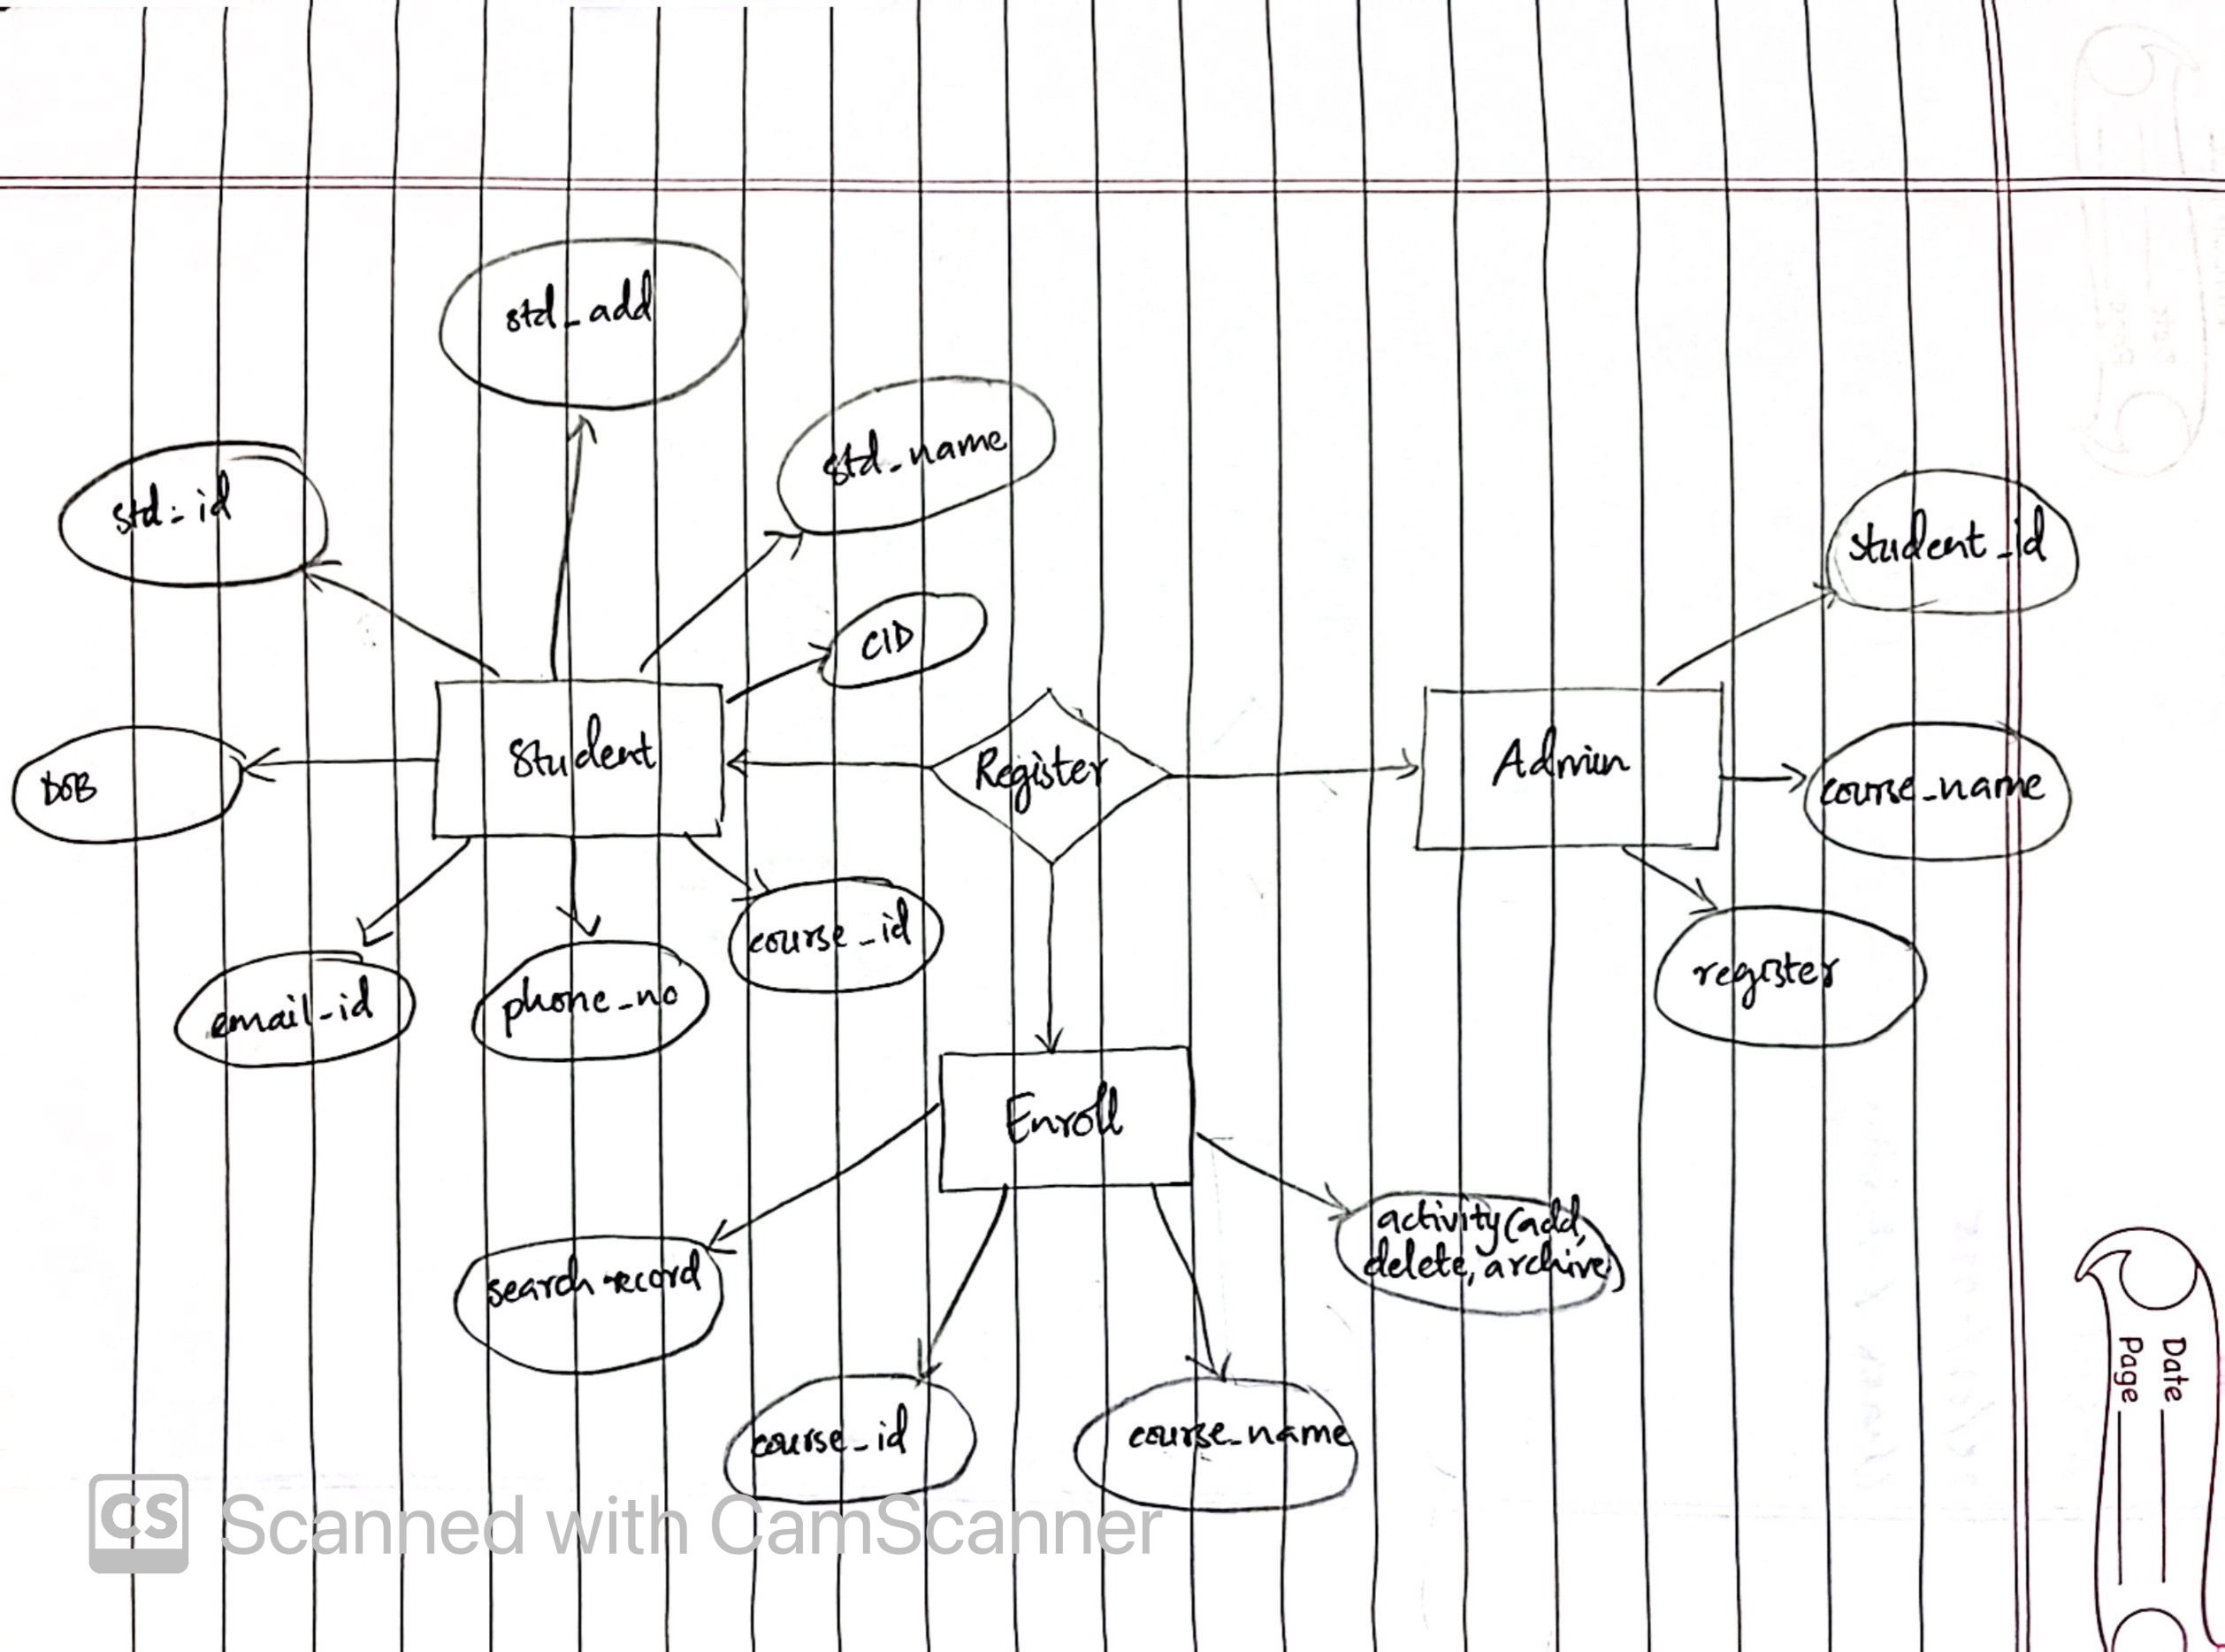 std_add
std_name
std_id
student_id
CID
Student
Register
Admin
DOB
course_name
course_id
register
email_id
phone_no
Enroll
activity(add,
delete, archive)
search record
course_id
course_name
Date
Page
CS Scanned with CamScanner